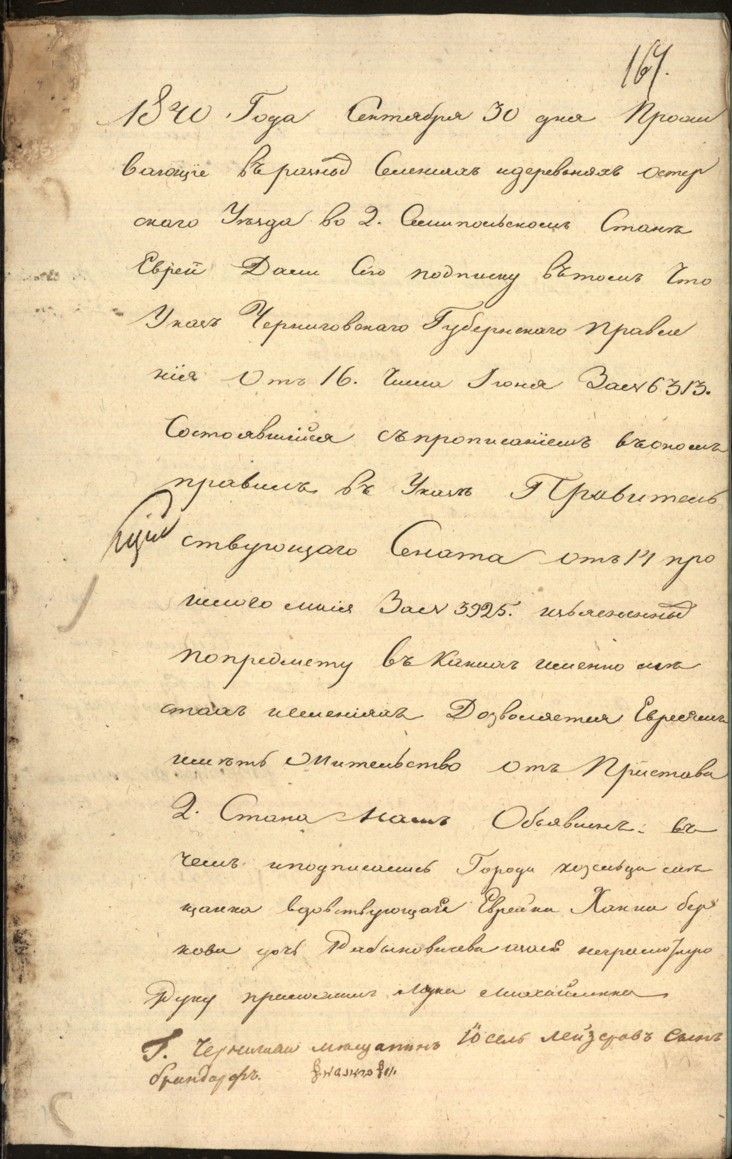 167.
1840 Года Сентября 30 дня Прожи
вающіе въ разныхъ Селеніяхъ и деревьняхъ остер
скаго Уѣзда во 2. Семипольскомъ Станѣ
Еврей Дали Сію подписку въ томъ Что
Указъ Черниговскаго Губернскаго Правле
нія Отъ 16. Числа Іюня За № 6313.
Состоявшійся съ прописаніемъ въ ономъ
правилъ въ Указѣ Правитель
ствующаго Сената отъ 14 про
шлого маія За № 3925. изъясненныхъ
по предмету въ какихъ именно мѣ
стахъ и имѣніяхъ Дозволяется Евреямъ
имѣть Жительство отъ Пристава
2. Стана Намъ Объявленъ. въ
чемъ и подписались Города козельца мѣ
щанка вдовствующая Еврейка Ханна бер
кова дочь неграмотную
Руку приложилъ Лука Михайленко
Г. Чернигова мещанинъ Іосель Лейзеровъ Сынъ